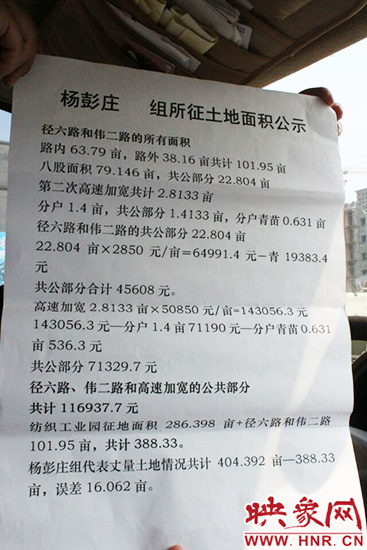 杨彭庄 组所征土地面积公示
径六路和伟二路的所有面积
路内 63.79 亩，路外 38.16 亩共计 101.95 亩
八股面积 79.146 亩，共公部分 22.804 亩
第二次高速加宽共计 2.8133 亩
分户 1.4 亩，共公部分 1.4133 亩，分户青苗 0.631 亩
径六路和伟二路的共公部分 22.804 亩
22.804 亩×2850 元/亩=64991.4 元－青 19383.4
元
共公部分合计 45608 元。
高速加宽 2.8133 亩×50850 元/亩=143056.3 元
143056.3 元—分户 1.4 亩 71190 元—分户青苗 0.631
亩 536.3 元
共公部分 71329.7 元
径六路、伟二路和高速加宽的公共部分
共计 116937.7 元
纺织工业园征地面积 286.398 亩+径六路和伟二路
101.95 亩，共计 388.33。
杨彭庄组代表丈量土地情况共计 404.392 亩—388.33
亩，误差 16.062 亩。
映象网
WWW.HNR.CN